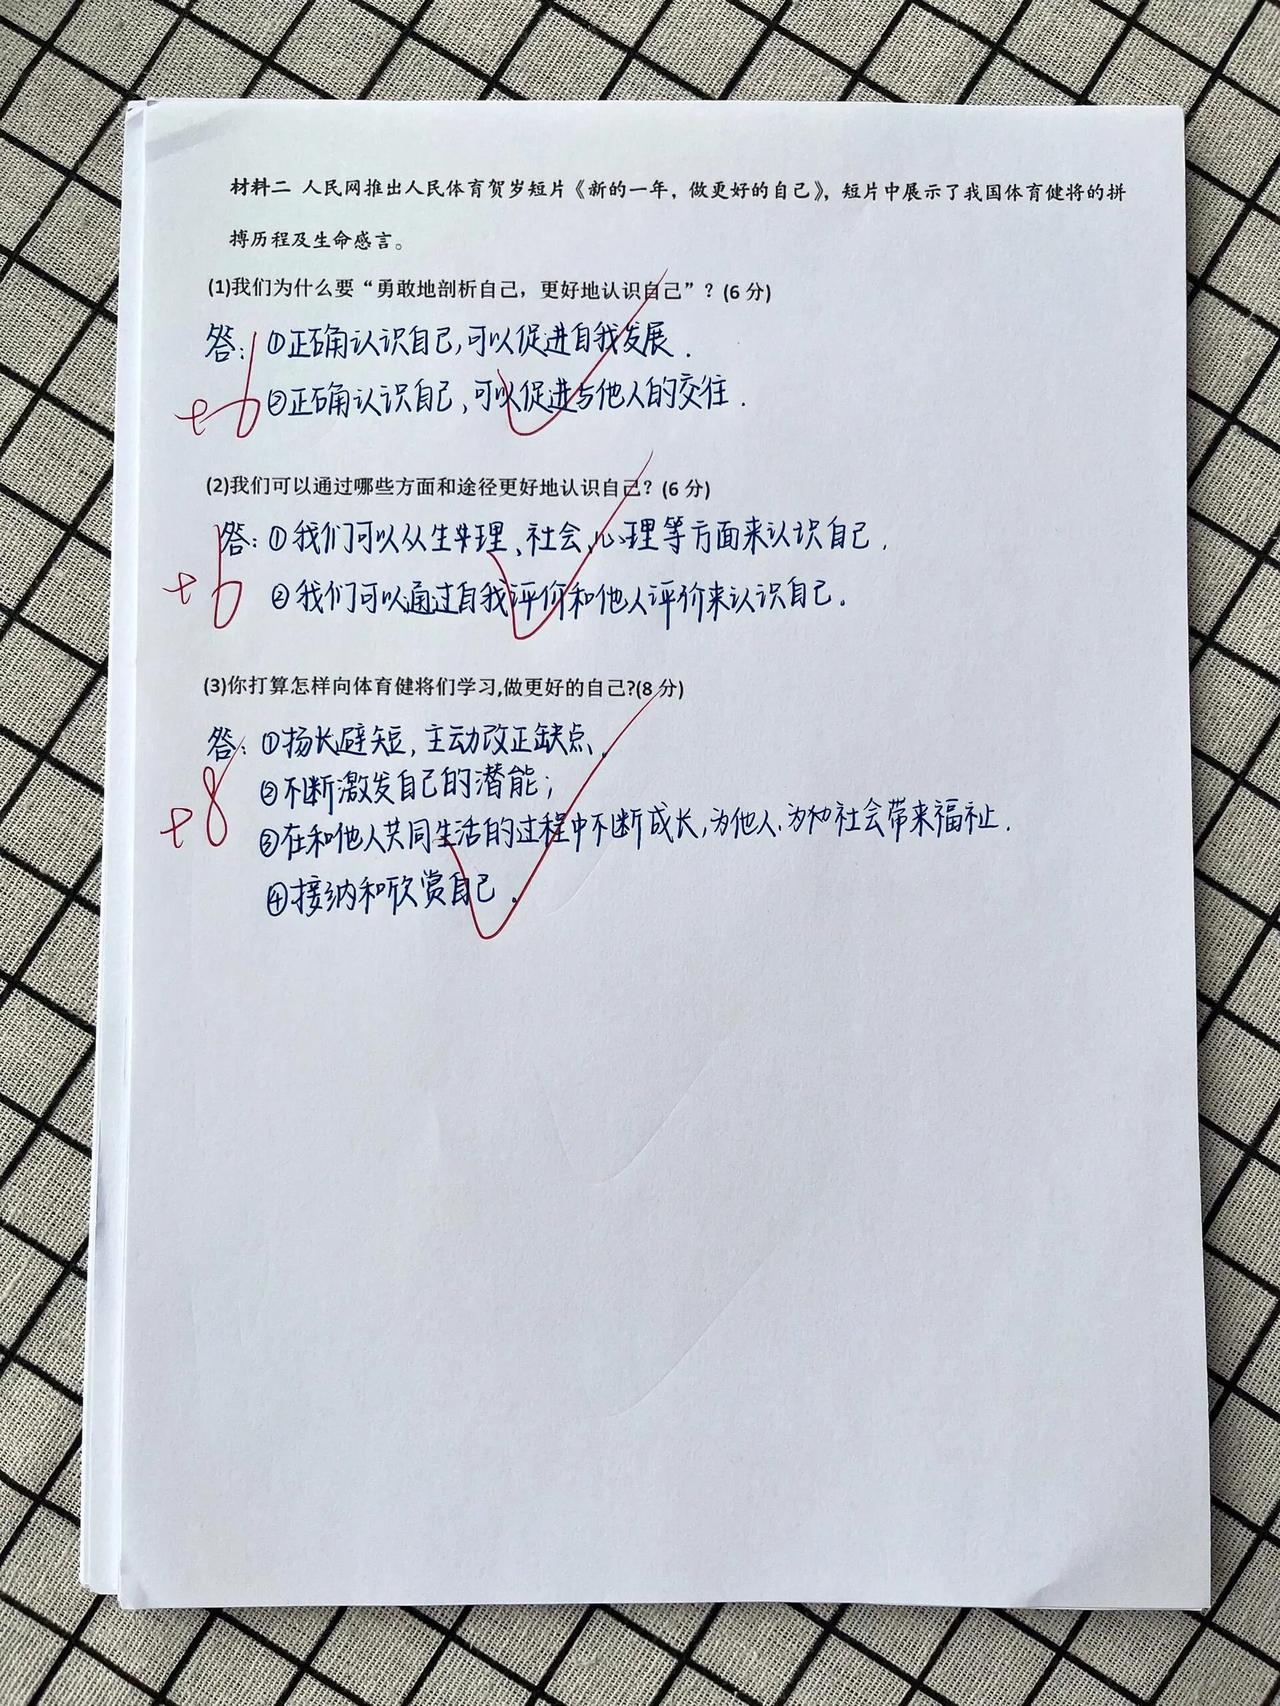 材料二 人民网推出人民体育贺岁短片《新的一年，做更好的自己》，短片中展示了我国体育健将的拼
搏历程及生命感言。
(1)我们为什么要“勇敢地剖析自己，更好地认识自己”？(6分)
答：①正确认识自己,可以促进自我发展.
+6
②正确认识自己,可以促进与他人的交往.
(2)我们可以通过哪些方面和途径更好地认识自己？(6分)
答：①我们可以从生理、社会、心理等方面来认识自己.
+6
②我们可以通过自我评价和他人评价来认识自己.
(3)你打算怎样向体育健将们学习,做更好的自己?(8分)
答：①扬长避短,主动改正缺点、
②不断激发自己的潜能；
+8
③在和他人共同生活的过程中不断成长,为他人、为社会带来福祉.
④接纳和欣赏自己.